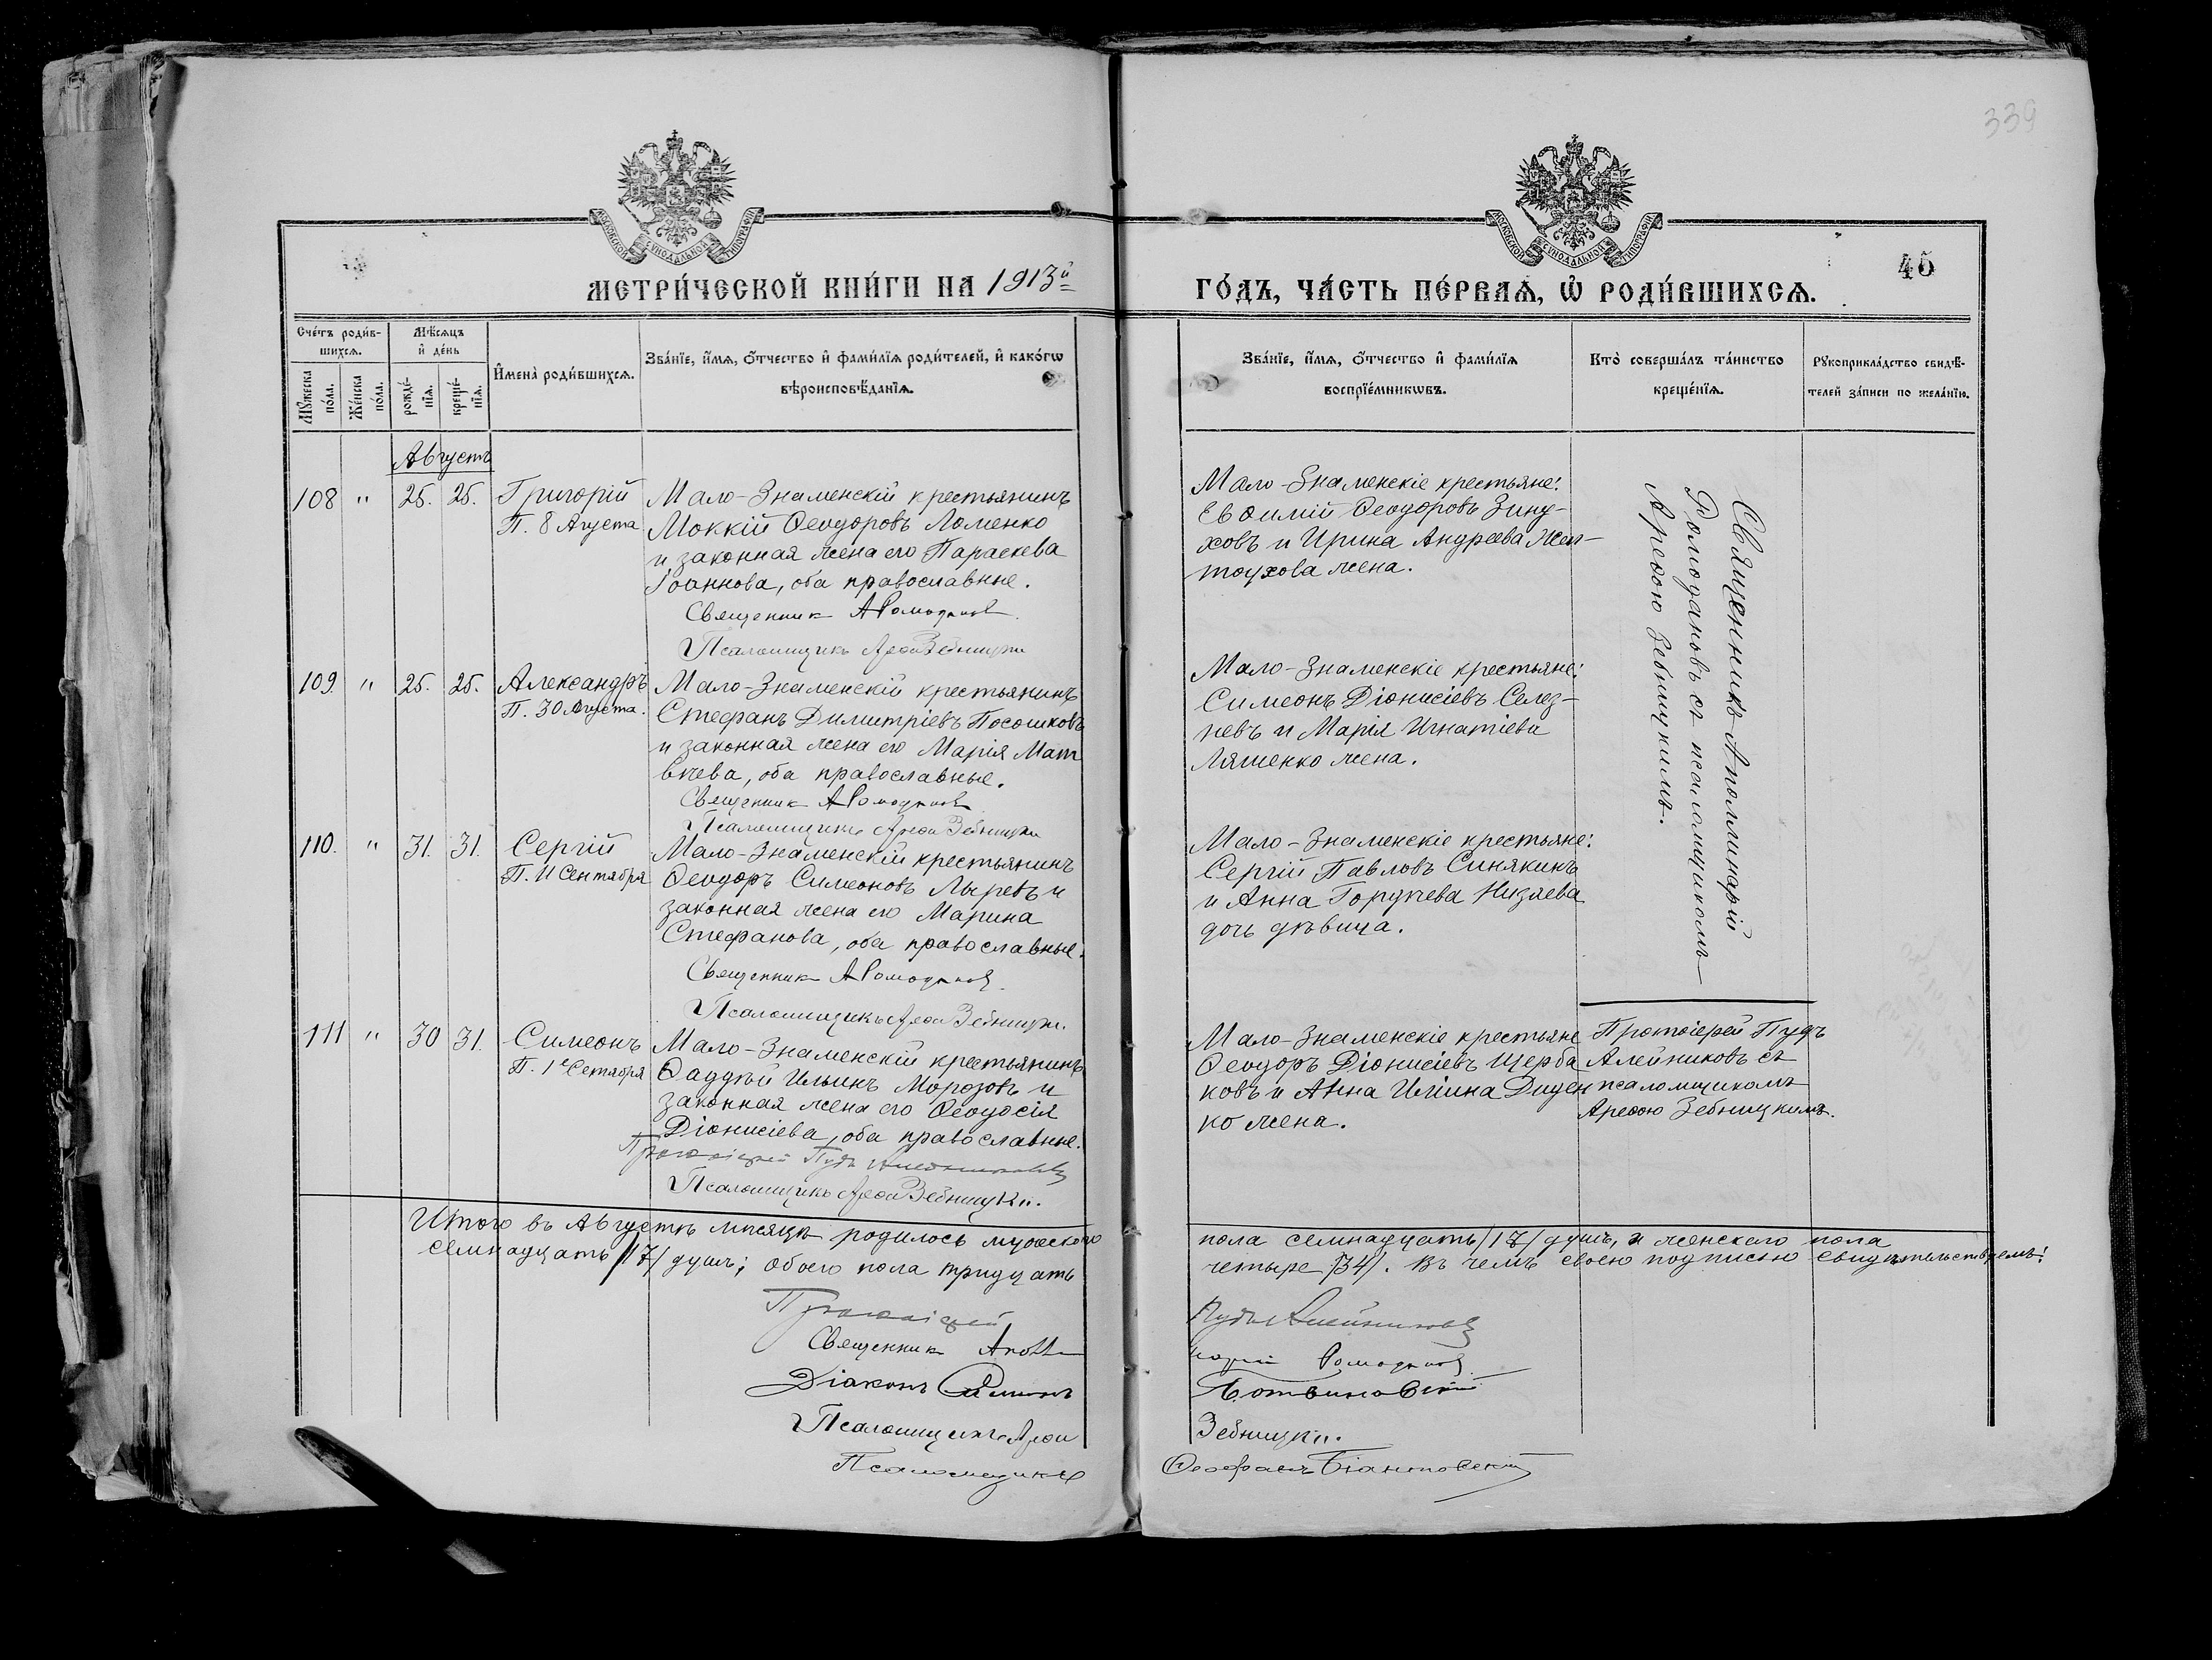 339
МОСКОВСКОЙ СѴНОДАЛЬНОЙ ТИПОГРАФІИ
МОСКОВСКОЙ СѴНОДАЛЬНОЙ ТИПОГРАФІИ
45
МЕТРИ́ЧЕСКОЙ КНИ́ГИ НА 1913й
ГО́ДЪ, ЧА́СТЬ ПЕ́РВАѦ, Ѽ РОДИ́ВШИХСѦ.
Сче́тъ роди́в-
шихсѧ.
Мѣ́сѧцъ
и҆ де́нь
Мꙋ́жеска по́ла.
Же́нска по́ла.
рожде́-
нїѧ.
креще́-
нїѧ.
И҆мена̀ роди́вшихсѧ.
Зва́нїе, и҆́мѧ, ѻ҆́тчество и҆ фами́лїѧ роди́телей, и҆ како́гѡ
вѣроисповѣ́данїѧ.
Зва́нїе, и҆́мѧ, ѻ҆́тчество и҆ фами́лїѧ
воспрїе́мникѡвъ.
Кто̀ соверша́лъ та́инство
креще́нїѧ.
Рꙋкоприкла́дство свидѣ́-
телей за́писи по жела́нїю.
Августъ
108 " 25. 25. Григорій
П. 8 Августа
Мало-Знаменскій крестьянинъ
Моккій Ѳеодоровъ Ломенко
и законная жена его Параскева
Іоаннова, оба православные.
Священник А Ромоданов
Псаломщикъ Арефа Зебницкій
Мало-Знаменскіе крестьяне:
Евѳимій Ѳеодоровъ Зину-
ховъ и Ирина Андреева Жел-
тоухова жена.
Священникъ Аполлинарій
Ромодановъ съ псаломщикомъ
Арефою Зебницкимъ.
109. " 25. 25. Александръ
П. 30 Августа.
Мало-Знаменскій крестьянинъ
Стефанъ Димитріевъ Посошковъ
и законная жена его Марія Мат
вѣева, оба православные.
Священник А Ромоданов
Псаломщикъ Арефа Зебницкій
Мало-Знаменскіе крестьяне:
Симеонъ Діонисіевъ Селез-
невъ и Марія Игнатіева
Ляшенко жена.
110. " 31. 31. Сергій
П. Сентября
Мало-Знаменскій крестьянинъ
Ѳеодоръ Симеоновъ Лыревъ и
законная жена его Марина
Стефанова, оба православные.
Священник А Ромоданов
Псаломщикъ Арефа Зебницкій.
Мало-Знаменскіе крестьяне:
Сергій Павловъ Синякинъ
и Анна Гордѣева Низяева
дочь дѣвица.
111 " 30 31. Симеонъ
П. 1е Сетября
Мало-Знаменскій крестьянинъ
Ѳаддѣй Ильинъ Морозовъ и
законная жена его Ѳеодосія
Діонисіева, оба православные.
Протоіерей Пудъ Алейниковъ
Псаломщикъ Арефа Зебницкій.
Мало-Знаменскіе крестьяне
Ѳеодоръ Діонисіевъ Щерба
ковъ и Анна Иліина Диден
ко жена.
Протоіерей Пудъ
Алейниковъ съ
псаломщикомъ
Арефою Зебницкимъ.
Итого въ Августѣ мѣсяцѣ родилось мужеского
пола семнадцать /17/ душъ, и женскаго пола
семнадцать /17/ душъ; обоего пола тридцать
четыре /34/. Въ чемъ своею подписью свидѣтельствуемъ:
Протоіерей Пудъ Алейниковъ
Священник Аполлинарій Ромоданов
Діаконъ Ботвиновскій
Псаломщикъ Арефа Зебницкій.
Псаломщикъ Ѳеофанъ